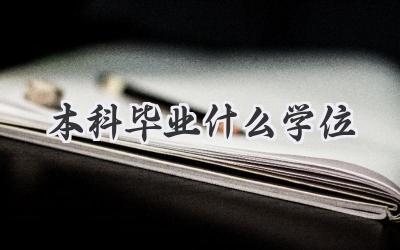 本科毕业什么学位